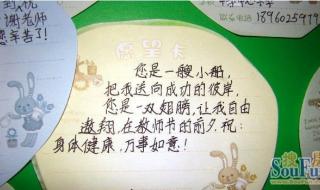 到 祝
谢老师
您辛苦了!
联系电话 189602599
愿望卡
您是一艘小船,
把我送向成功的彼岸,
您是一双翅膀,让我自由
遨翔.在教师节的前夕.祝:
身体健康,万事如意!
搜房
SouFun